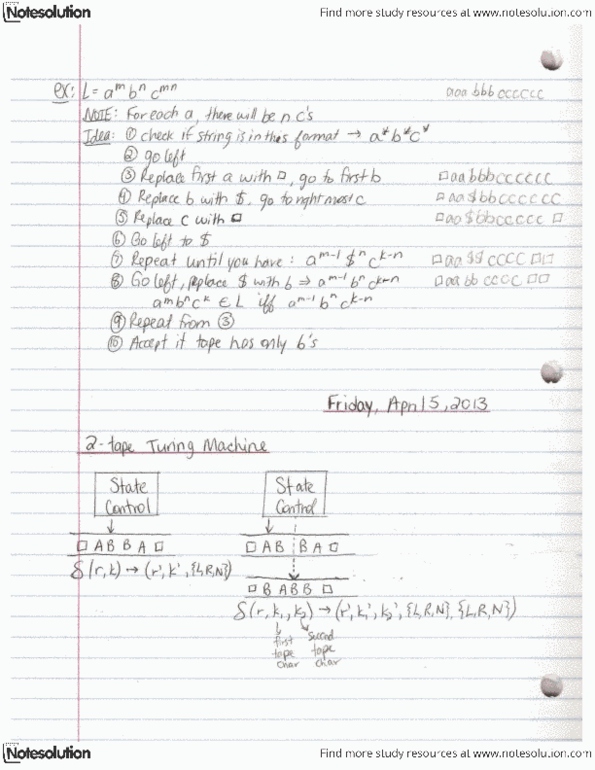 Notesolution
Find more study resources at www.notesolution.com
ex: L = a^m b^n c^mn aaa bbb cccccc
NOTE: For each a, there will be n c's
Idea: ① check if string is in this format → a* b* c*
② go left
③ Replace first a with □, go to first b □aabbbcccccc
④ Replace b with $, go to right most c □aa$bbcccccc
⑤ Replace c with □ □aa$bbccccc□
⑥ Go left to $
⑦ Repeat until you have: a^m-1 $^n c^k-n □aa$$cccc□□
⑧ Go left, replace $ with b ⇒ a^m-1 b^n c^k-n □aabbcccc□□
a^m b^n c^k ∈ L iff a^m-1 b^n c^k-n
⑨ Repeat from ③
⑩ Accept if tape has only b's
Friday, April 5, 2013
2-tape Turing Machine
State Control State Control
□ A B B A □ □ A B B A □
δ(r,k) → (r', k', {L,R,N}) □ B A B B □
δ(r, k₁, k₂) → (r', k₁', k₂', {L,R,N}, {L,R,N})
first tape char second tape char
Notesolution
Find more study resources at www.notesolution.com